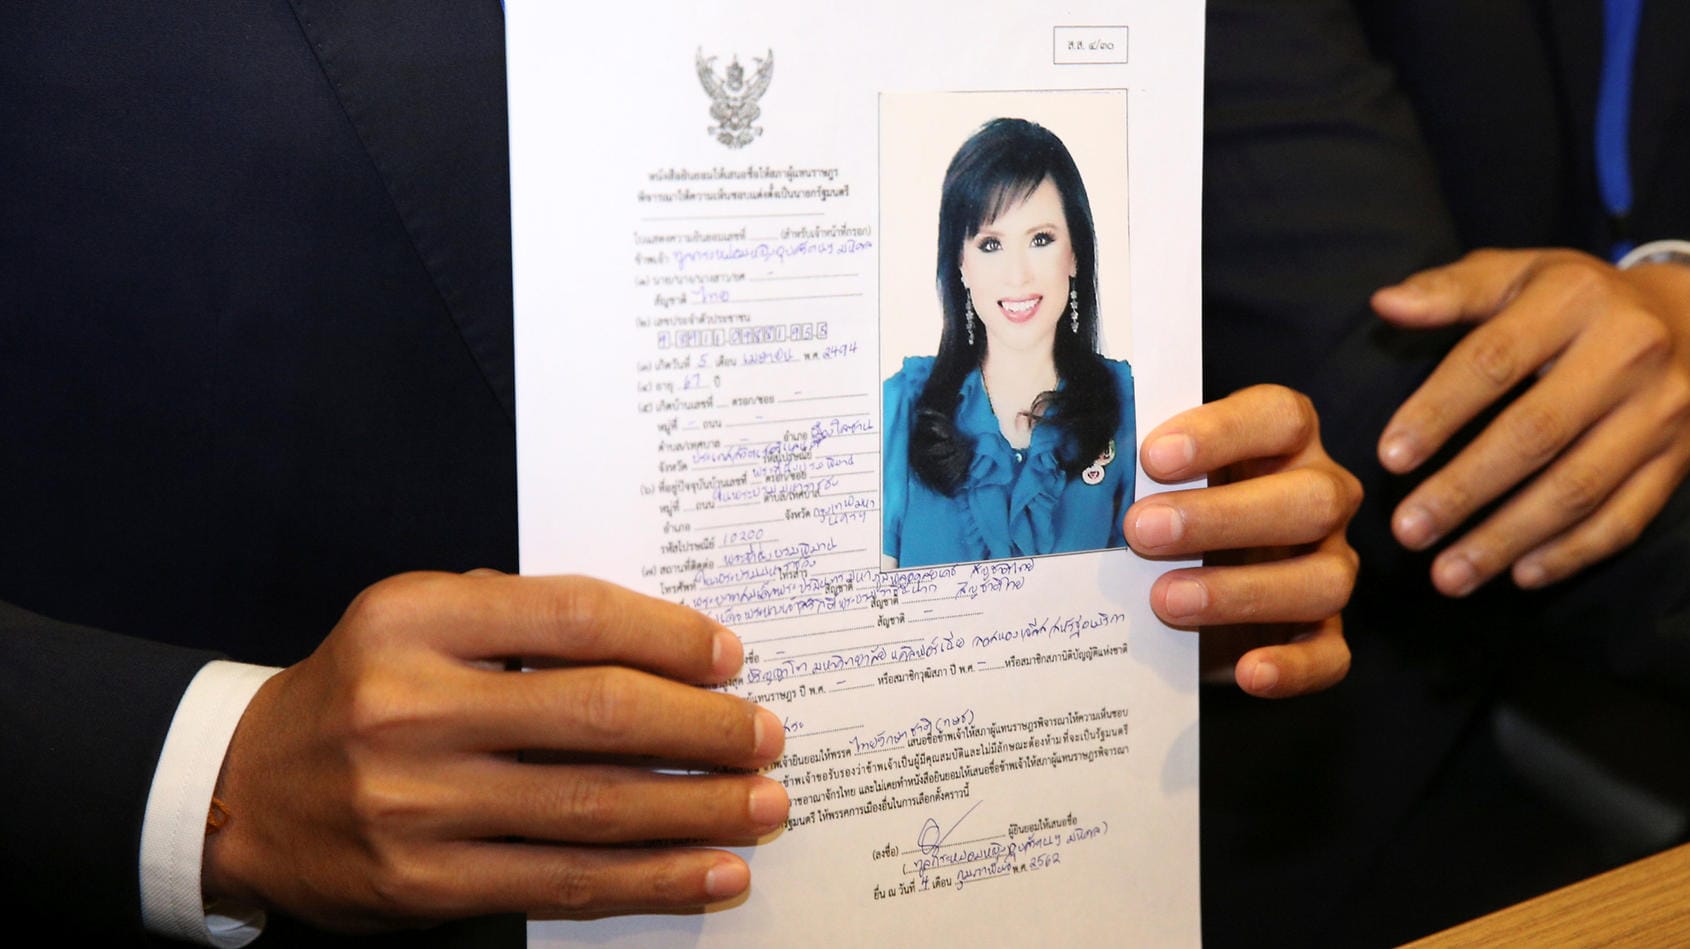 ส.ส. ๔/๓๐
หนังสือยินยอมให้เสนอชื่อให้สภาผู้แทนราษฎร
พิจารณาให้ความเห็นชอบแต่งตั้งเป็นนายกรัฐมนตรี
ใบแสดงความยินยอมเลขที่ ........ (สำหรับเจ้าหน้าที่กรอก)
ข้าพเจ้า ทูลกระหม่อมหญิงอุบลรัตนฯ มหิดล
(๑) นาย/นาง/นางสาว/ยศ -
สัญชาติ ไทย
(๒) เลขประจำตัวประชาชน
(๓) เกิดวันที่ 5 เดือน เมษายน พ.ศ. 2494
(๔) อายุ 67 ปี
(๕) เกิดบ้านเลขที่ .... ตรอก/ซอย -
หมู่ที่ - ถนน -
ตำบล/เทศบาล - อำเภอ เมืองโลซาน
จังหวัด ประเทศสวิตเซอร์แลนด์ รหัสไปรษณีย์
(๖) ที่อยู่ปัจจุบันบ้านเลขที่ .... ตรอก/ซอย
หมู่ที่ .... ถนน ........ ตำบล/เทศบาล
อำเภอ ........ จังหวัด กรุงเทพมหานคร
รหัสไปรษณีย์ 10200
(๗) สถานที่ติดต่อ
โทรศัพท์ โทรสาร
สัญชาติ สัญชาติไทย
สัญชาติ สัญชาติไทย
สัญชาติ -
ชื่อ -
สูงสุด ปริญญาโท มหาวิทยาลัย แคลิฟอร์เนีย ลอสแองเจลิส สหรัฐอเมริกา
แทนราษฎร ปี พ.ศ. - หรือสมาชิกวุฒิสภา ปี พ.ศ. - หรือสมาชิกสภานิติบัญญัติแห่งชาติ
ข้าพเจ้ายินยอมให้พรรค ไทยรักษาชาติ (ทษช) เสนอชื่อข้าพเจ้าให้สภาผู้แทนราษฎรพิจารณาให้ความเห็นชอบ
ข้าพเจ้าขอรับรองว่าข้าพเจ้าเป็นผู้มีคุณสมบัติและไม่มีลักษณะต้องห้ามที่จะเป็นรัฐมนตรี
ราชอาณาจักรไทย และไม่เคยทำหนังสือยินยอมให้เสนอชื่อข้าพเจ้าให้สภาผู้แทนราษฎรพิจารณา
รัฐมนตรี ให้พรรคการเมืองอื่นในการเลือกตั้งคราวนี้
(ลงชื่อ) ........ ผู้ยินยอมให้เสนอชื่อ
(ทูลกระหม่อมหญิงอุบลรัตนฯ มหิดล)
ยื่น ณ วันที่ 4 เดือน กุมภาพันธ์ พ.ศ. 2562